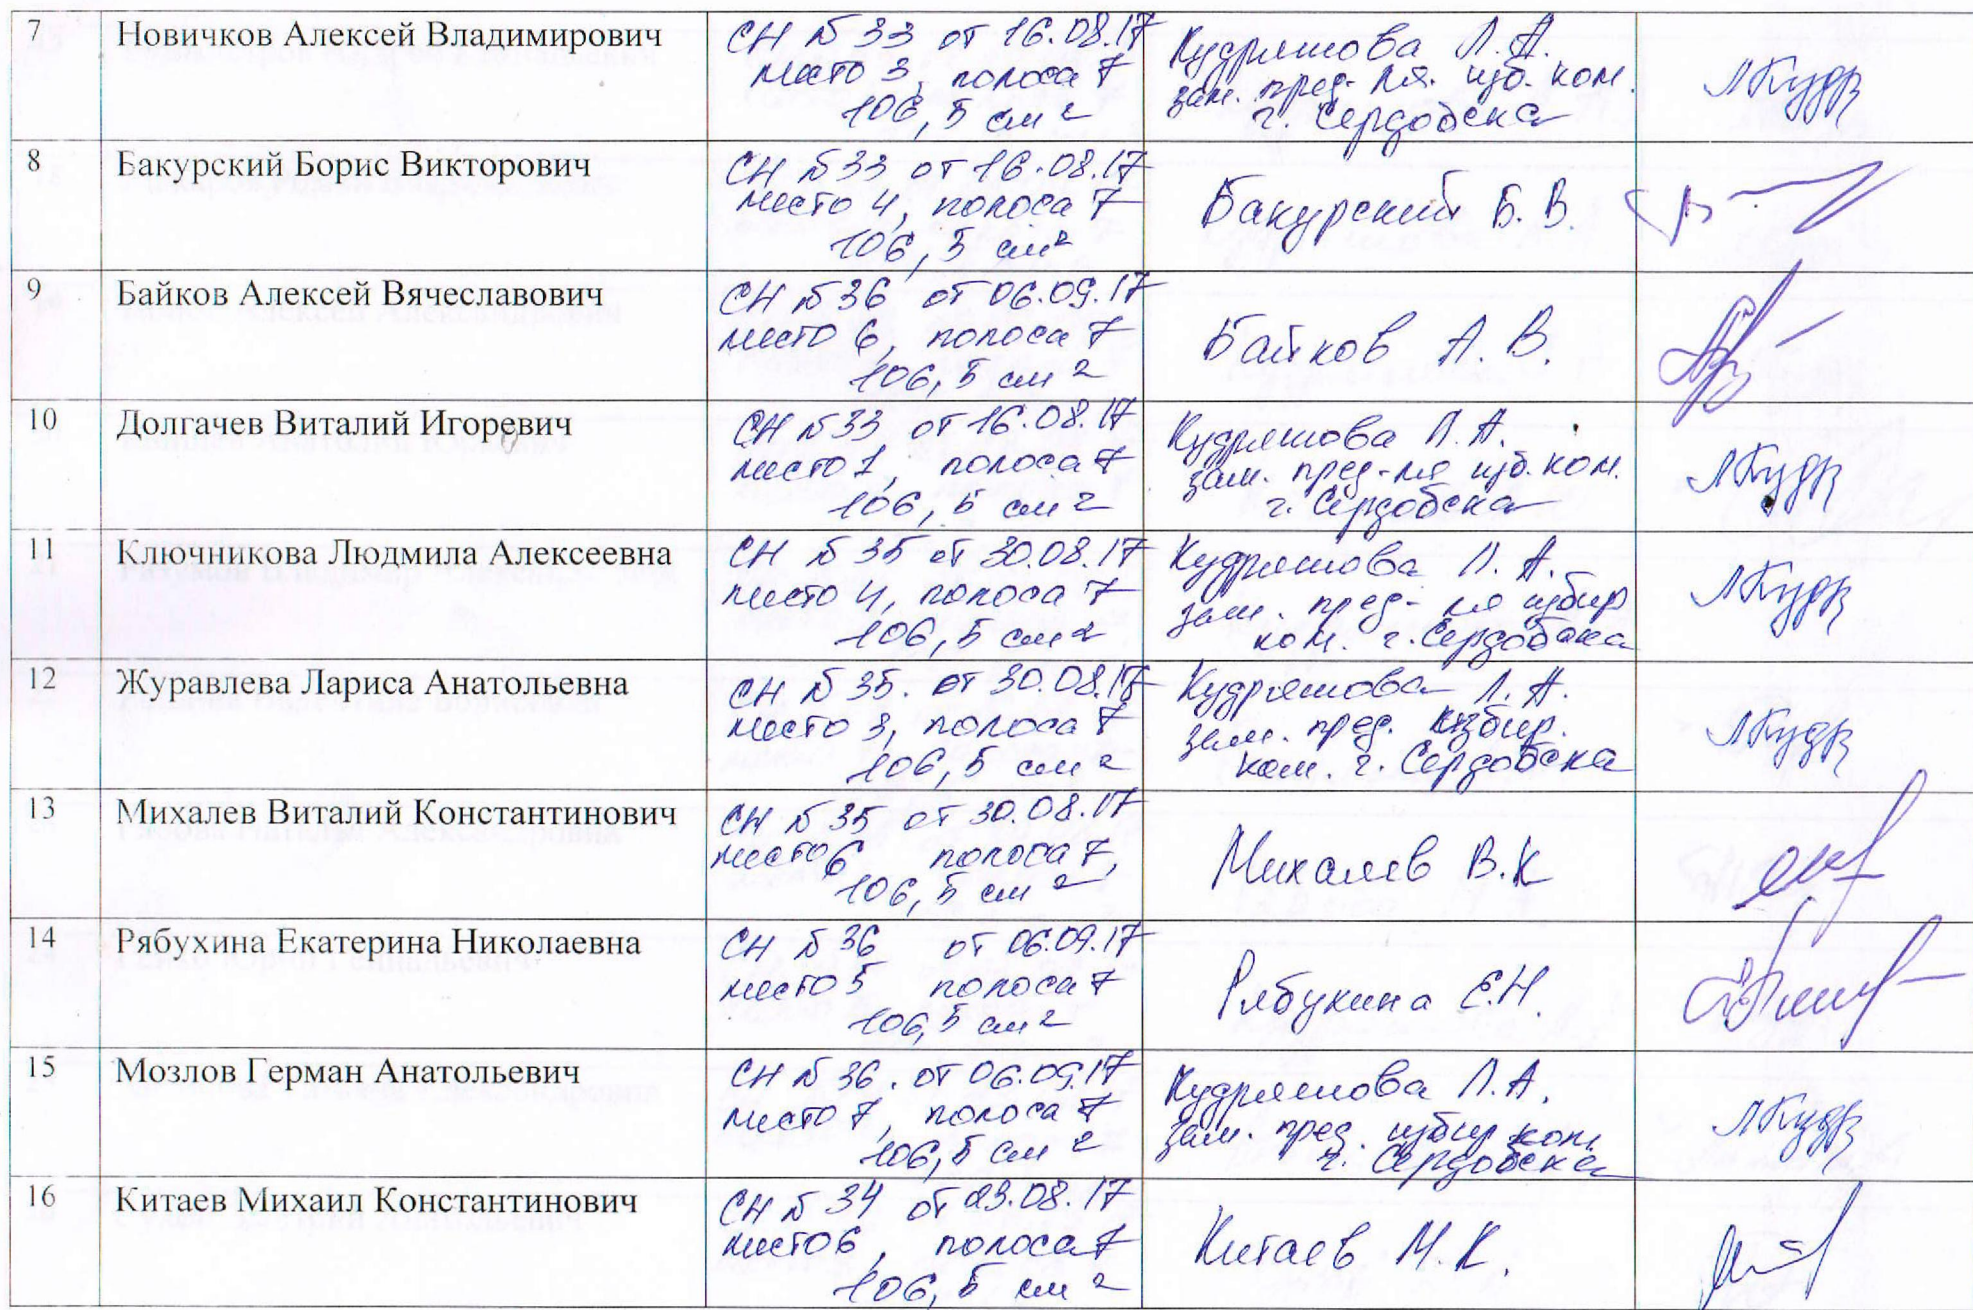 7 Новичков Алексей Владимирович
СН №33 от 16.08.17
место 3, полоса 7
106,5 см2
Кудряшова Л.А.
зам. пред-ля. изб. ком.
г. Сердобска
ЛКудр
8 Бакурский Борис Викторович
СН №33 от 16.08.17
место 4, полоса 7
106,5 см2
Бакурский Б.В.
9 Байков Алексей Вячеславович
СН №36 от 06.09.17
место 6, полоса 7
106,5 см2
Байков А.В.
10 Долгачев Виталий Игоревич
СН №33 от 16.08.17
место 1, полоса 7
106,5 см2
Кудряшова Л.А.
зам. пред-ля изб. ком.
г. Сердобска
ЛКудр
11 Ключникова Людмила Алексеевна
СН №35 от 30.08.17
место 4, полоса 7
106,5 см2
Кудряшова Л.А.
зам. пред-ля избир
ком. г. Сердобска
ЛКудр
12 Журавлева Лариса Анатольевна
СН №35. от 30.08.17
место 3, полоса 7
106,5 см2
Кудряшова Л.А.
зам. пред. избир.
ком. г. Сердобска
ЛКудр
13 Михалев Виталий Константинович
СН №35 от 30.08.17
место 6 полоса 7,
106,5 см2
Михалев В.К
14 Рябухина Екатерина Николаевна
СН №36 от 06.09.17
место 5 полоса 7
106,5 см2
Рябухина Е.Н.
15 Мозлов Герман Анатольевич
СН №36. от 06.09.17
место 7, полоса 7
106,5 см2
Кудряшова Л.А.
зам. пред. избир ком.
г. Сердобска
ЛКудр
16 Китаев Михаил Константинович
СН №34 от 23.08.17
место 6, полоса 7
106,5 см2
Китаев М.К.